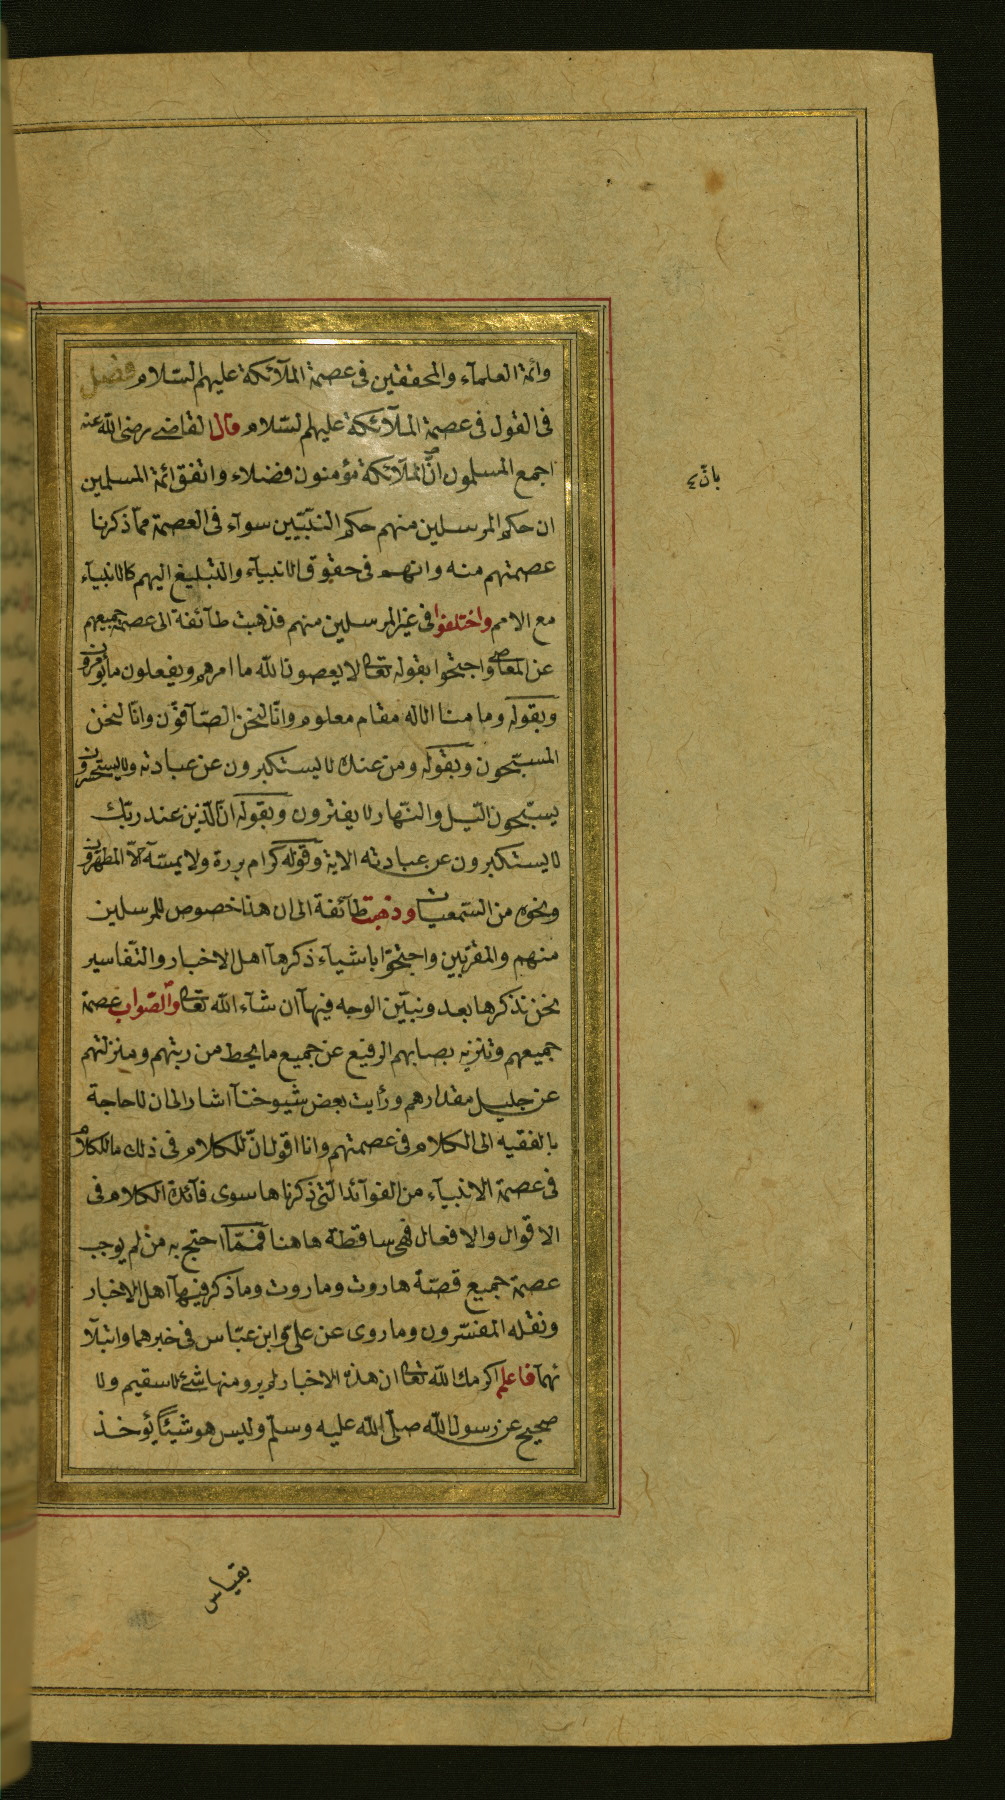 وأئمة العلمآء والمحققين فى عصمة الملآئكة عليهم السّلام فصل
فى القول فى عصمة الملآئكة عليهم السّلام قال القاضى رضى الله عنه
اجمع المسلمون انّ الملآئكة مؤمنون فضلاء واتفق ائمة المسلمين
بانّ
ان حكم المرسلين منهم حكم النبّيين سوآء فى العصمة ممّا ذكرنا
عصمتهم منه وانهم فى حقوق الانبيآء والتبليغ اليهم كالانبيآء
مع الامم واختلفوا فى غير المرسلين منهم فذهبت طآئفة الى عصمة جميعهم
عن المعاصى واحتجّوا بقوله تعالى لا يعصون الله ما امرهم ويفعلون ما يؤمرون
وبقوله وما منا الا له مقام معلوم وانّا لنحن الصّآفّون وانّا لنحن
المسبّحون وبقوله ومن عنده لا يستكبرون عن عبادته ولا يستحسرون
يسبّحون اللّيل والنّهار لا يفترون وبقوله انّ الّذين عند ربّك
لا يستكبرون عن عبادته الاية وقوله كرام بررة ولا يمسّه الاّ المطهرون
ونحوه من السّمعيات وذهبت طآئفة الى ان هذا خصوص للمرسلين
منهم والمقرّبين واحتجّوا باشيآء ذكرها اهل الاخبار والتّفاسير
نحن نذكرها بعد ونبيّن الوجه فيهآ ان شآء الله تعالى والصّواب عصمة
جميعهم وتنزيه نصابهم الرفيع عن جميع ما يحط من رتبتهم ومنزلتهم
عن جليل مقدارهم ورأيت بعض شيوخنآ اشار الى ان لا حاجة
بالفقيه الى الكلام فى عصمتهم وانا اقول انّ للكلام فى ذلك ما للكلام
فى عصمة الانبيآء من الفوآئد الّتى ذكرناها سوى فآئدة الكلام فى
الاقوال والافعال فهى ساقطة هاهنا فممّا احتج به من لم يوجب
عصمة جميع قصّة هاروت وماروت وما ذكر فيهآ اهل الاخبار
ونقله المفسّرون وما روى عن علىّ وابن عبّاس فى خبرهما وابتلآ
ئهما فاعلم اكرمك الله تعالى ان هذه الاخبار لم يرو منها شئ لا سقيم ولا
صحيح عن رسول الله صلّى الله عليه وسلّم وليس هو شيئًا يؤخذ
بقياس